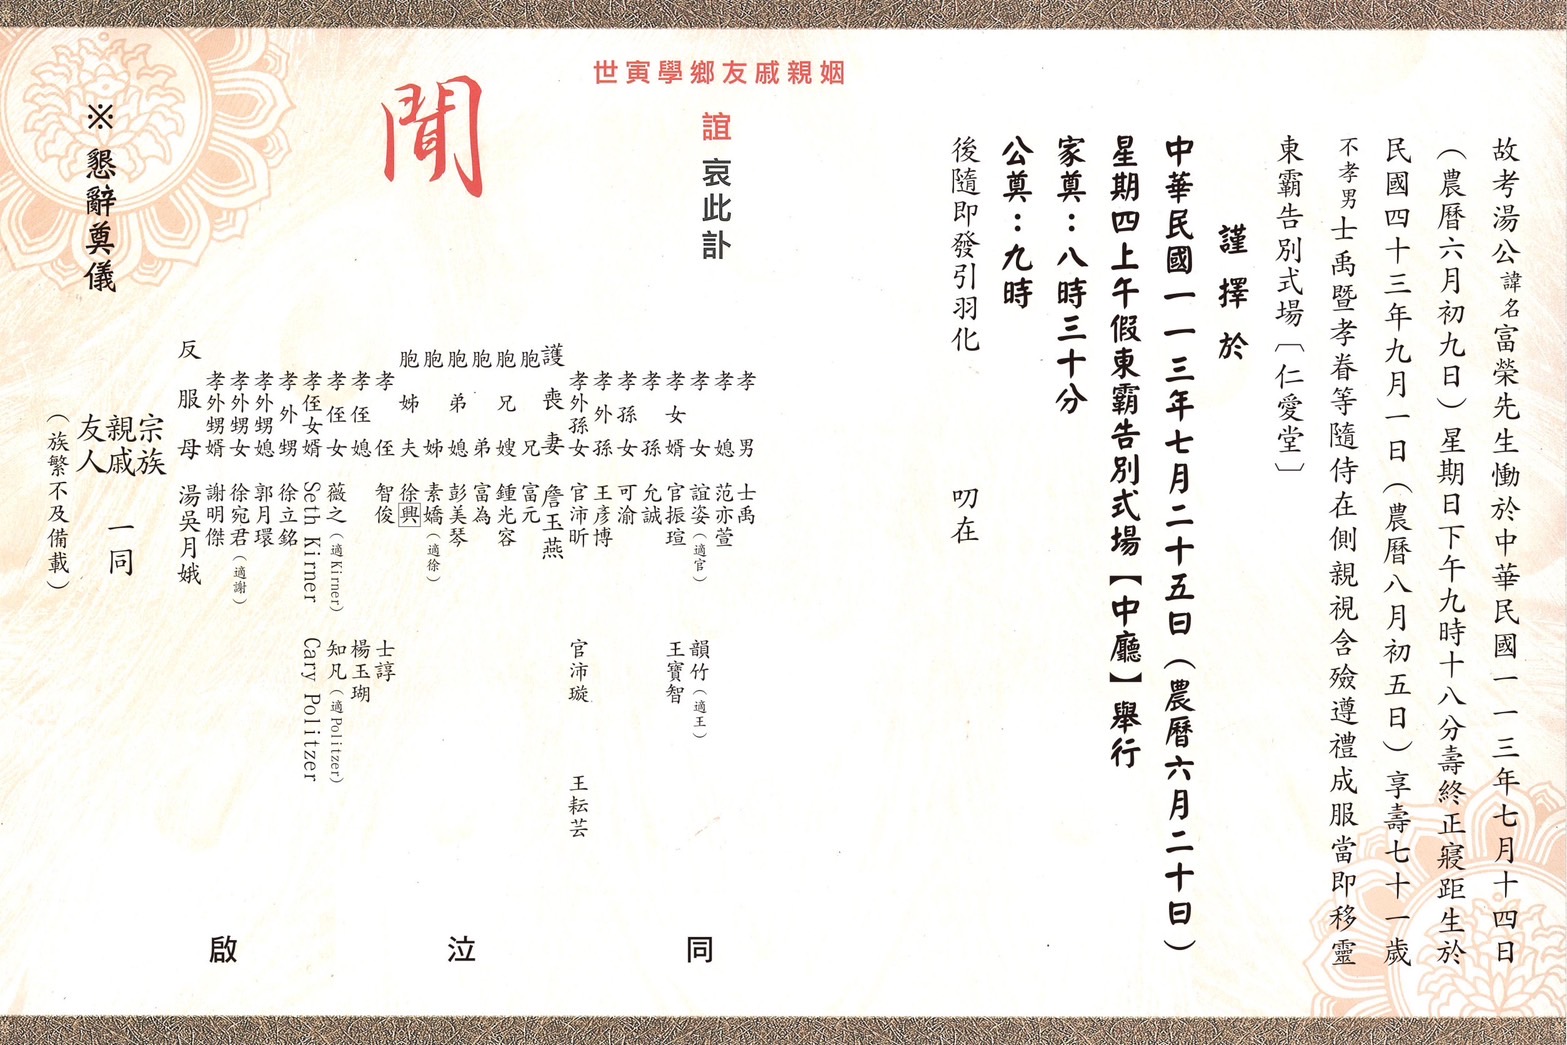 故考湯公諱名富榮先生慟於中華民國一一三年七月十四日
（農曆六月初九日）星期日下午九時十八分壽終正寢距生於
民國四十三年九月一日（農曆八月初五日）享壽七十一歲
不孝男士禹暨孝眷等隨侍在側親視含殮遵禮成服當即移靈
東霸告別式場〔仁愛堂〕
謹擇於
中華民國一一三年七月二十五日（農曆六月二十日）
星期四上午假東霸告別式場【中廳】舉行
家奠：八時三十分
公奠：九時
後隨即發引羽化 叨在
姻親戚友鄉學寅世
誼 哀此訃
聞
孝男 士禹
孝媳 范亦萱
孝女 誼姿（適官） 韻竹（適王）
孝女婿 官振瑄 王寶智
孝孫 允誠
孝孫女 可渝
孝外孫 王彥博
孝外孫女 官沛昕 官沛璇 王耘芸
護喪妻 詹玉燕
胞兄 富元
胞兄嫂 鍾光容
胞弟 富為
胞弟媳 彭美琴
胞姊 素嬌（適徐）
胞姊夫 徐興
孝侄 智俊 士諄
孝侄媳 楊玉瑚
孝侄女 薇之（適Kirner） 知凡（適Politzer）
孝侄女婿 Seth Kirner Cary Politzer
孝外甥 徐立銘
孝外甥媳 郭月環
孝外甥女 徐宛君（適謝）
孝外甥婿 謝明傑
反服母 湯吳月娥
宗族
親戚 一同
友人
（族繁不及備載）
同 泣 啟
※懇辭奠儀